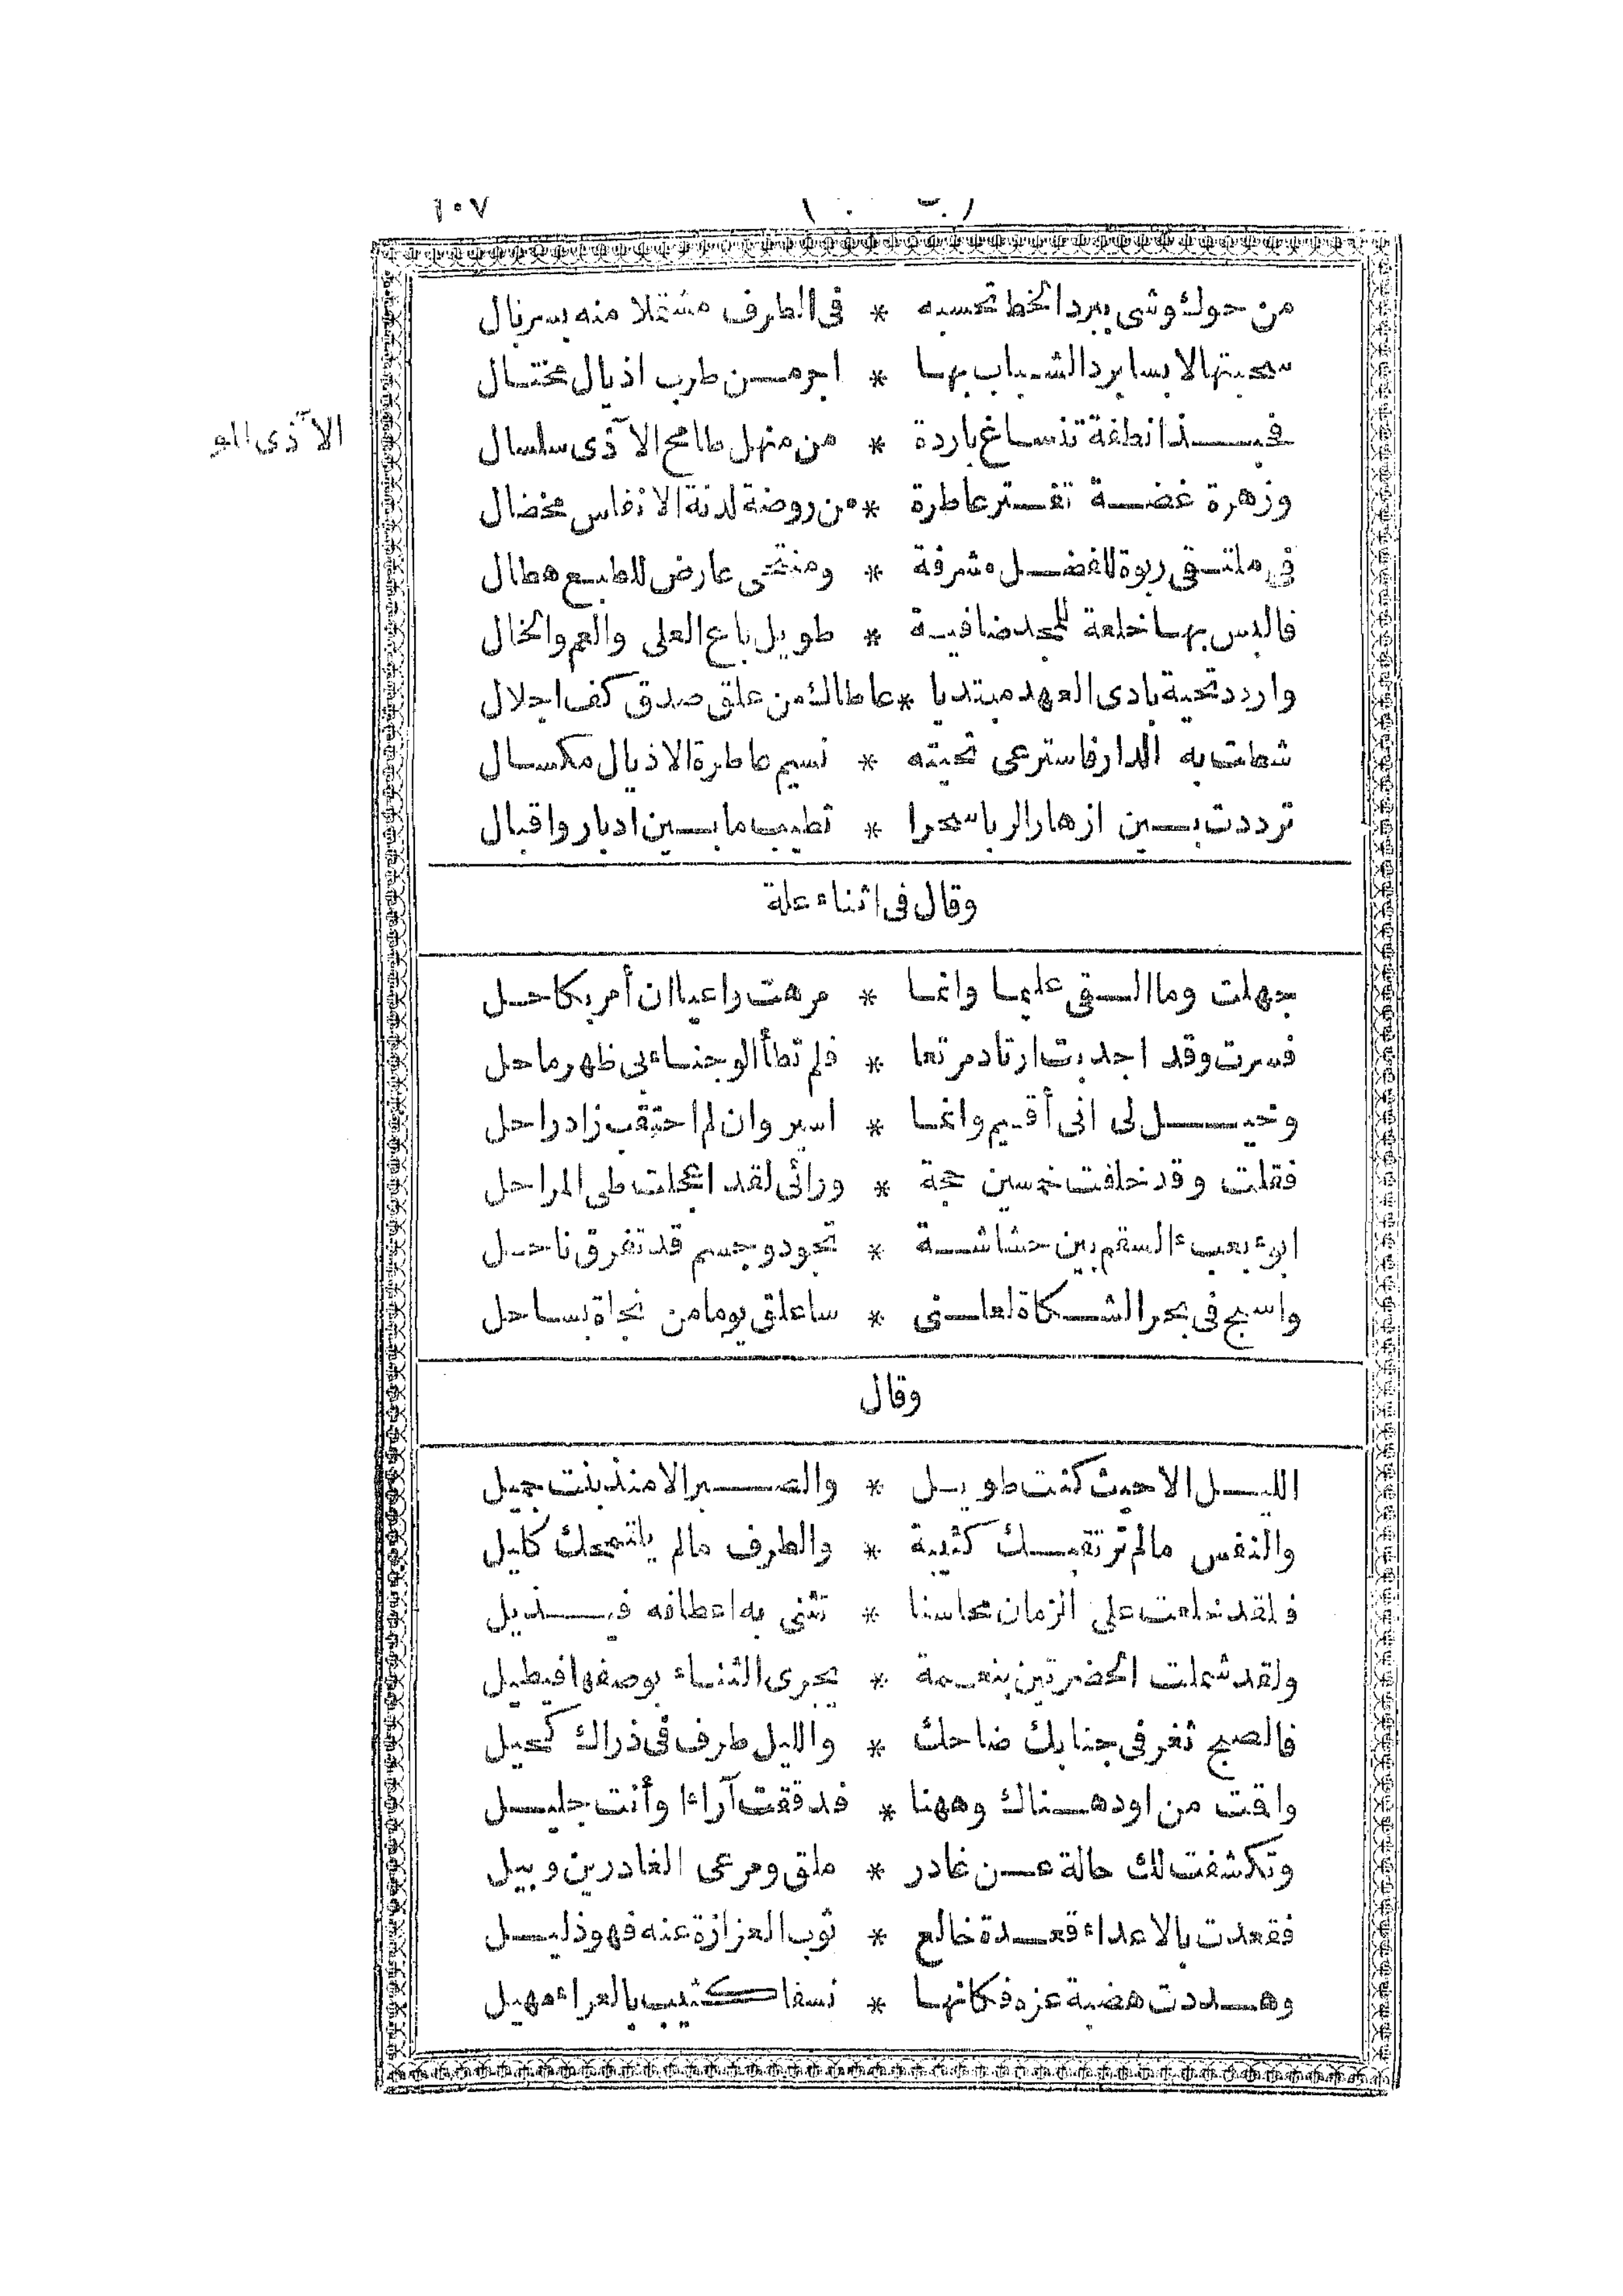 ١٠٧
من حوك وشى ببرد الخط تحسبه * فى الطرف مشتملا منه بسربال
سحبتها لابسا برد الشباب بها * اجر من طرب اذيال مختال
فحبذا نطفة تنساغ باردة * من منهل طامح الآذى سلسال
الآذى المو
وزهرة غضة تفتر عاطرة * من روضة لدنة الانفاس مخضال
فى ملتقى ربوة للفضل مشرفة * ومنتحى عارض للطبع هطال
فالبس بها خلعة للمجد ضافية * طويل باع العلى والعم والخال
واردد تحية بادى العهد مبتديا * عاطاك من علق صدق كف اجلال
شطت به الدار فاسترعى تحيته * نسيم عاطرة الاذيال مكسال
ترددت بين ازهار الربا سحرا * تطيب ما بين ادبار واقبال
وقال فى اثناء علة
جهلت وما القى عليما وانما * مرهت داعيا ان أمر بكاحل
فسرت وقد اجدبت ارتاد مرتعا * فلم تطأ الوجناء بى ظهر ماحل
وخيل لى انى أقيم وانما * اسير وان لم احتقب زاد راحل
فقلت وقد خلفت خمسين حجة * ورائى لقد اعجلت طى المراحل
ابوء بعبء السقم بين حشاشة * تجود وجسم قد تفرق ناحل
واسبح فى بحر الشكاة لعلنى * ساعلق يوما من نجاة بساحل
وقال
الليل الا حيث كنت طويل * والصبر الا منذ بنت جميل
والنفس مالم ترتقبك كئيبة * والطرف مالم يلتمحك كليل
فلقد خلعت على الزمان محاسنا * تثنى به اعطافه فيذيل
ولقد شملت الحضرتين بنعمة * يجرى الثناء بوصفها فيطيل
فالصبح ثغر فى جنابك ضاحك * والليل طرف فى ذراك كحيل
واقت من اود هناك وههنا * فدققت آراءا وأنت جليل
وتكشفت لك حالة عن غادر * ملق ومرعى الغادرين وبيل
فقعدت بالاعداء قعدة خالع * ثوب العزازة عنه فهو ذليل
وهددت هضبة عزه فكانها * نسفا كثيب بالعراء مهيل